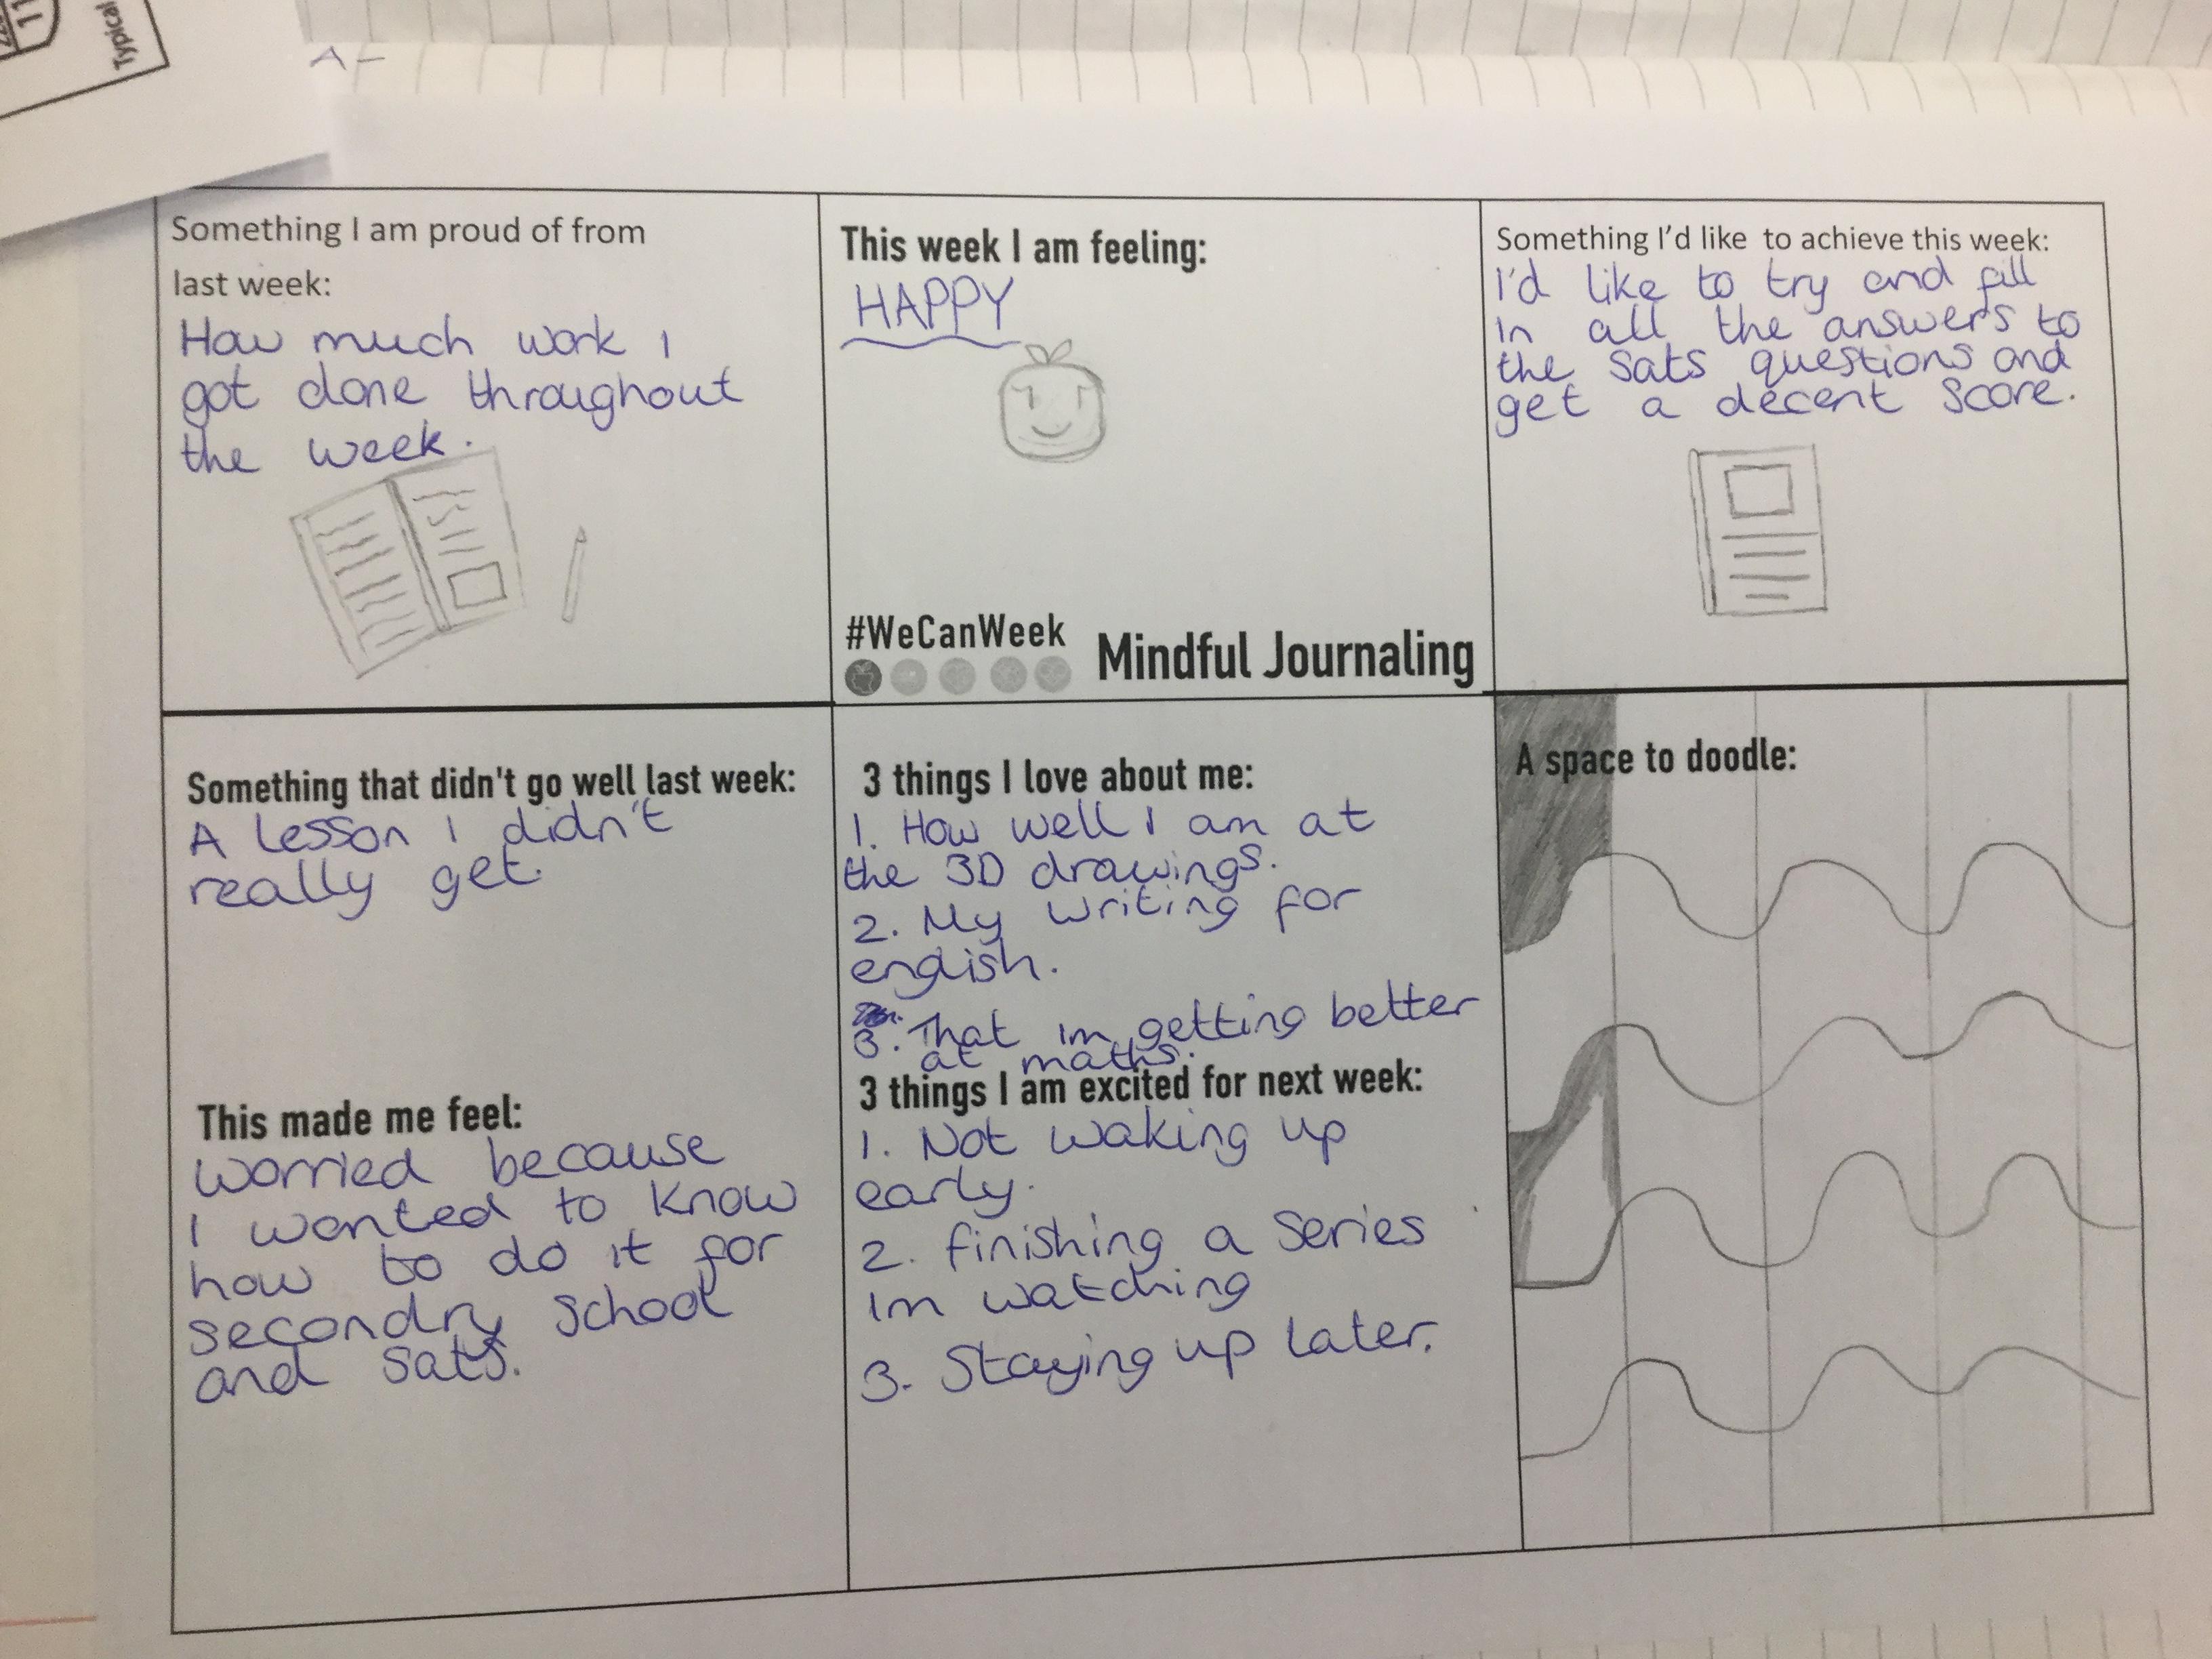 Typical
11
A -
Something I am proud of from
last week:
How much work I
got done throughout
the week.
This week I am feeling:
HAPPY
#WeCanWeek
Mindful Journaling
Something I'd like to achieve this week:
I'd like to try and fill
in all the answers to
the Sats questions and
get a decent score.
Something that didn't go well last week:
A lesson I didn't
really get.
This made me feel:
worried because
I wanted to know
how to do it for
secondry school
and sats.
3 things I love about me:
1. How well I am at
the 3D drawings.
2. My writing for
english.
3. That im getting better
at maths.
3 things I am excited for next week:
1. Not waking up
early.
2. finishing a series
im watching
3. Staying up later.
A space to doodle: